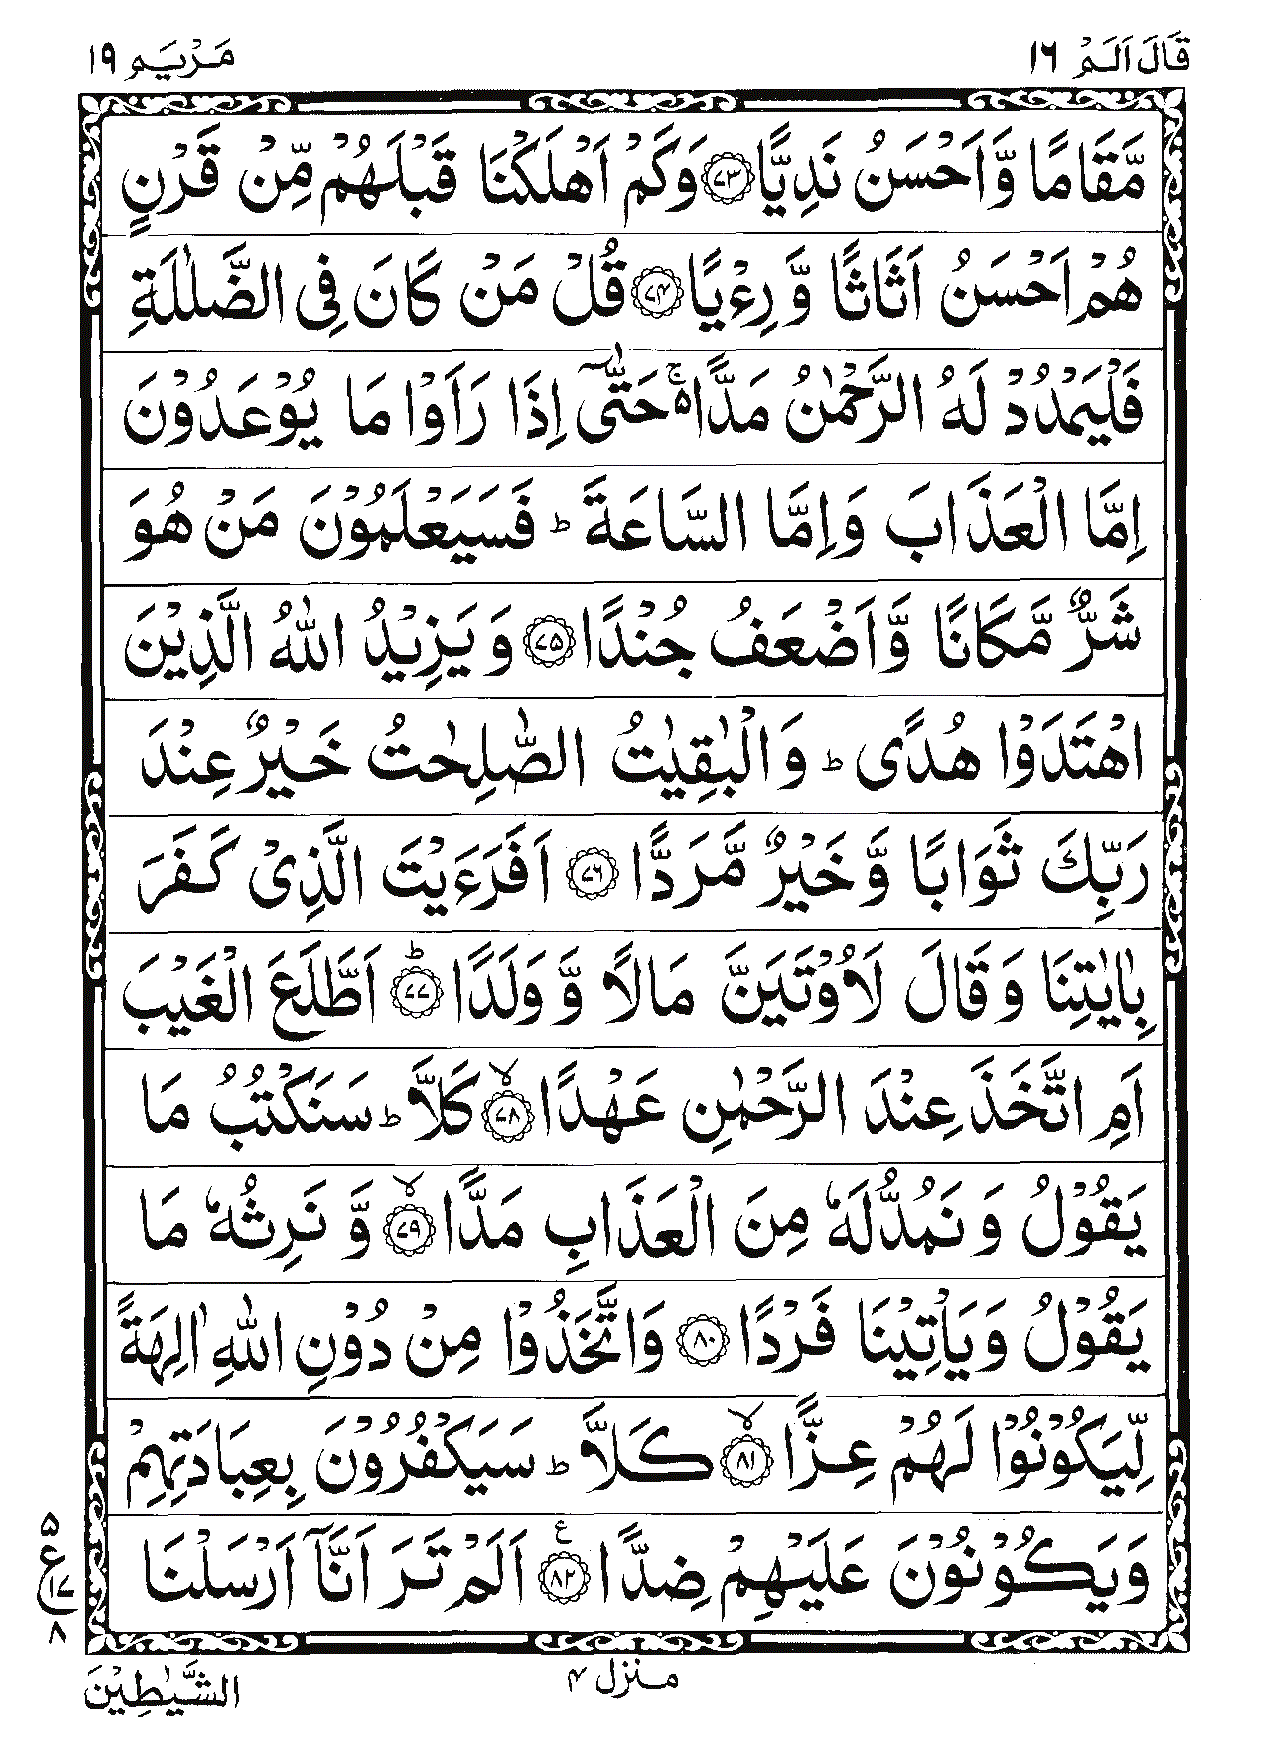 قَالَ اَلَمْ ١٦
مَرْيَم ١٩
مَّقَامًا وَّاَحْسَنُ نَدِيًّا ﴿٧٣﴾ وَكَمْ اَهْلَكْنَا قَبْلَهُمْ مِّنْ قَرْنٍ
هُمْ اَحْسَنُ اَثَاثًا وَّ رِءْيًا ﴿٧٤﴾ قُلْ مَنْ كَانَ فِى الضَّلٰلَةِ
فَلْيَمْدُدْ لَهُ الرَّحْمٰنُ مَدًّا ۚ۬ حَتّٰٓى اِذَا رَاَوْا مَا يُوْعَدُوْنَ
اِمَّا الْعَذَابَ وَاِمَّا السَّاعَةَ ؕ فَسَيَعْلَمُوْنَ مَنْ هُوَ
شَرٌّ مَّكَانًا وَّاَضْعَفُ جُنْدًا ﴿٧٥﴾ وَ يَزِيْدُ اللّٰهُ الَّذِيْنَ
اهْتَدَوْا هُدًى ؕ وَالْبٰقِيٰتُ الصّٰلِحٰتُ خَيْرٌ عِنْدَ
رَبِّكَ ثَوَابًا وَّ خَيْرٌ مَّرَدًّا ﴿٧٦﴾ اَفَرَءَيْتَ الَّذِىْ كَفَرَ
بِاٰيٰتِنَا وَ قَالَ لَاُوْتَيَنَّ مَالًا وَّ وَلَدًا ؕ﴿٧٧﴾ اَطَّلَعَ الْغَيْبَ
اَمِ اتَّخَذَ عِنْدَ الرَّحْمٰنِ عَهْدًا ۙ﴿٧٨﴾ كَلَّا ؕ سَنَكْتُبُ مَا
يَقُوْلُ وَ نَمُدُّ لَهٗ مِنَ الْعَذَابِ مَدًّا ۙ﴿٧٩﴾ وَّ نَرِثُهٗ مَا
يَقُوْلُ وَيَاْتِيْنَا فَرْدًا ﴿٨٠﴾ وَاتَّخَذُوْا مِنْ دُوْنِ اللّٰهِ اٰلِهَةً
لِّيَكُوْنُوْا لَهُمْ عِزًّا ۙ﴿٨١﴾ كَلَّا ؕ سَيَكْفُرُوْنَ بِعِبَادَتِهِمْ
وَيَكُوْنُوْنَ عَلَيْهِمْ ضِدًّا ﴿٨٢﴾ ع اَلَمْ تَرَ اَنَّآ اَرْسَلْنَا
٥
ع ١٧
٨
منزل ٤
الشَّيٰطِيْنَ